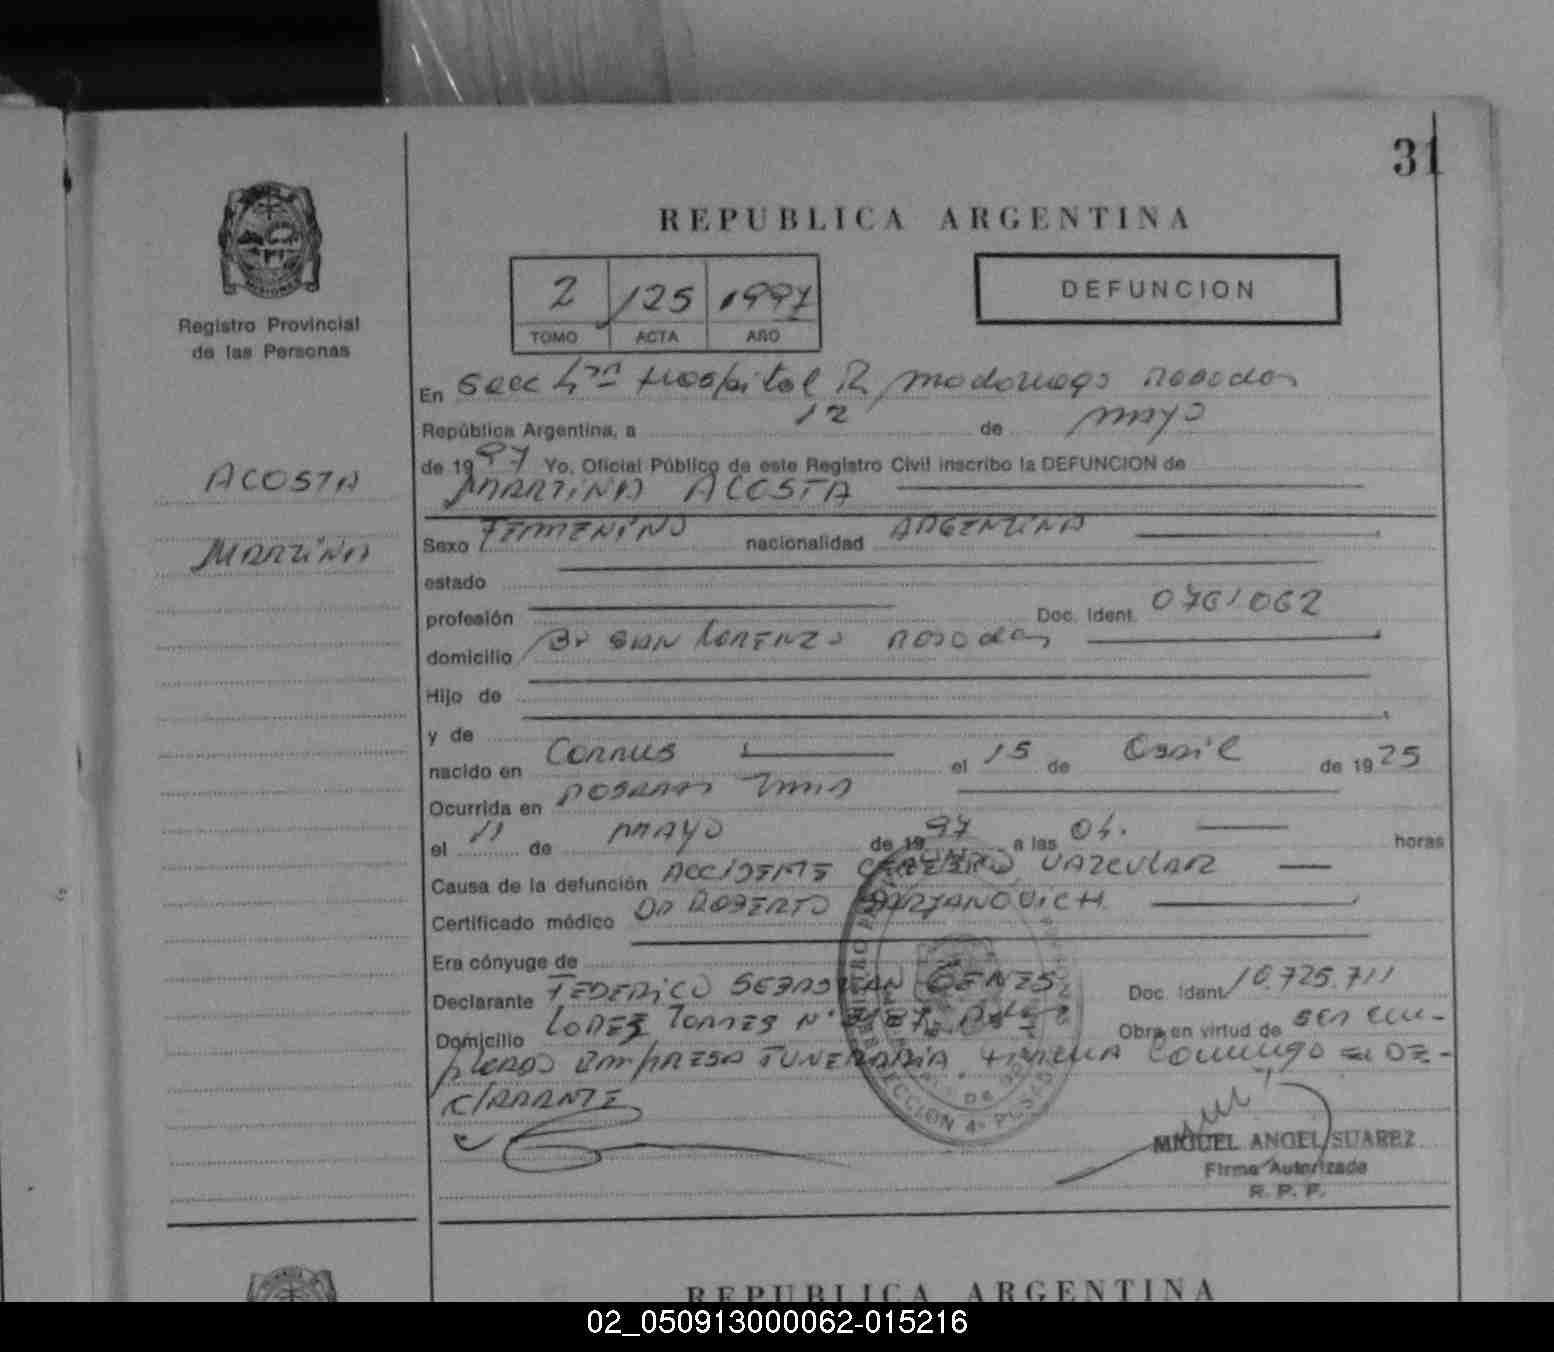 31
REPUBLICA ARGENTINA
Registro Provincial
de las Personas
2 125 1997
TOMO ACTA AÑO
DEFUNCION
En Secc 4ta Hospital R Madariaga Posadas
República Argentina, a 12 de mayo
de 1997 Yo, Oficial Público de este Registro Civil inscribo la DEFUNCION de
MARTINA ACOSTA
ACOSTA
MARTINA
Sexo FEMENINO nacionalidad ARGENTINA
estado
profesión Doc. Ident. 0761062
domicilio Bº SAN LORENZO Posadas
Hijo de
y de
nacido en el 15 de de 1925
Ocurrida en POSADAS
el 11 de MAYO de 1997 a las horas
Causa de la defunción ACCIDENTE CEREBRO VASCULAR
Certificado médico DR ROBERTO
Era cónyuge de
Declarante FEDERICO SEBASTIAN Doc. Ident. 10.725.711
Domicilio LOPEZ TORRES Nº Obra en virtud de ser em-
pleado EMPRESA FUNERARIA el DE-
CLARANTE
SECCION 4ª
MIGUEL ANGEL SUAREZ
Firma Autorizada
R. P. P.
REPUBLICA ARGENTINA
02_050913000062-015216